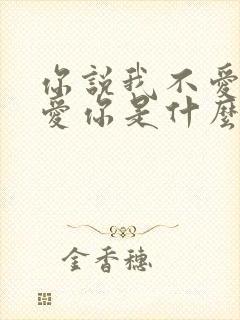 你說我不愛
愛你是什麼
金香穗